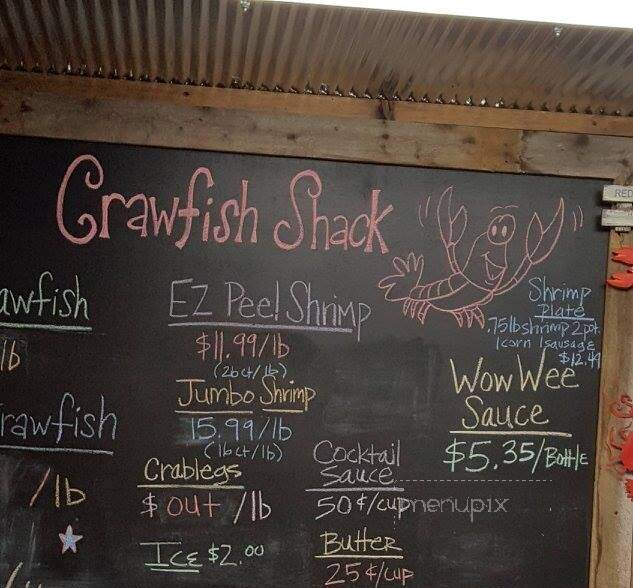 Crawfish Shack
RED
awfish
lb
rawfish
/lb
EZ Peel Shrimp
$11.99/lb
(26ct/lb)
Jumbo Shrimp
15.99/lb
(16ct/lb)
Crablegs
$ out /lb
ICE $2.00
Cocktail
Sauce
50¢/cup
Butter
25¢/cup
Shrimp
Plate
.75lb shrimp 2pot
1corn 1sausage
$12.49
Wow Wee
Sauce
$5.35/Bottle
menupix